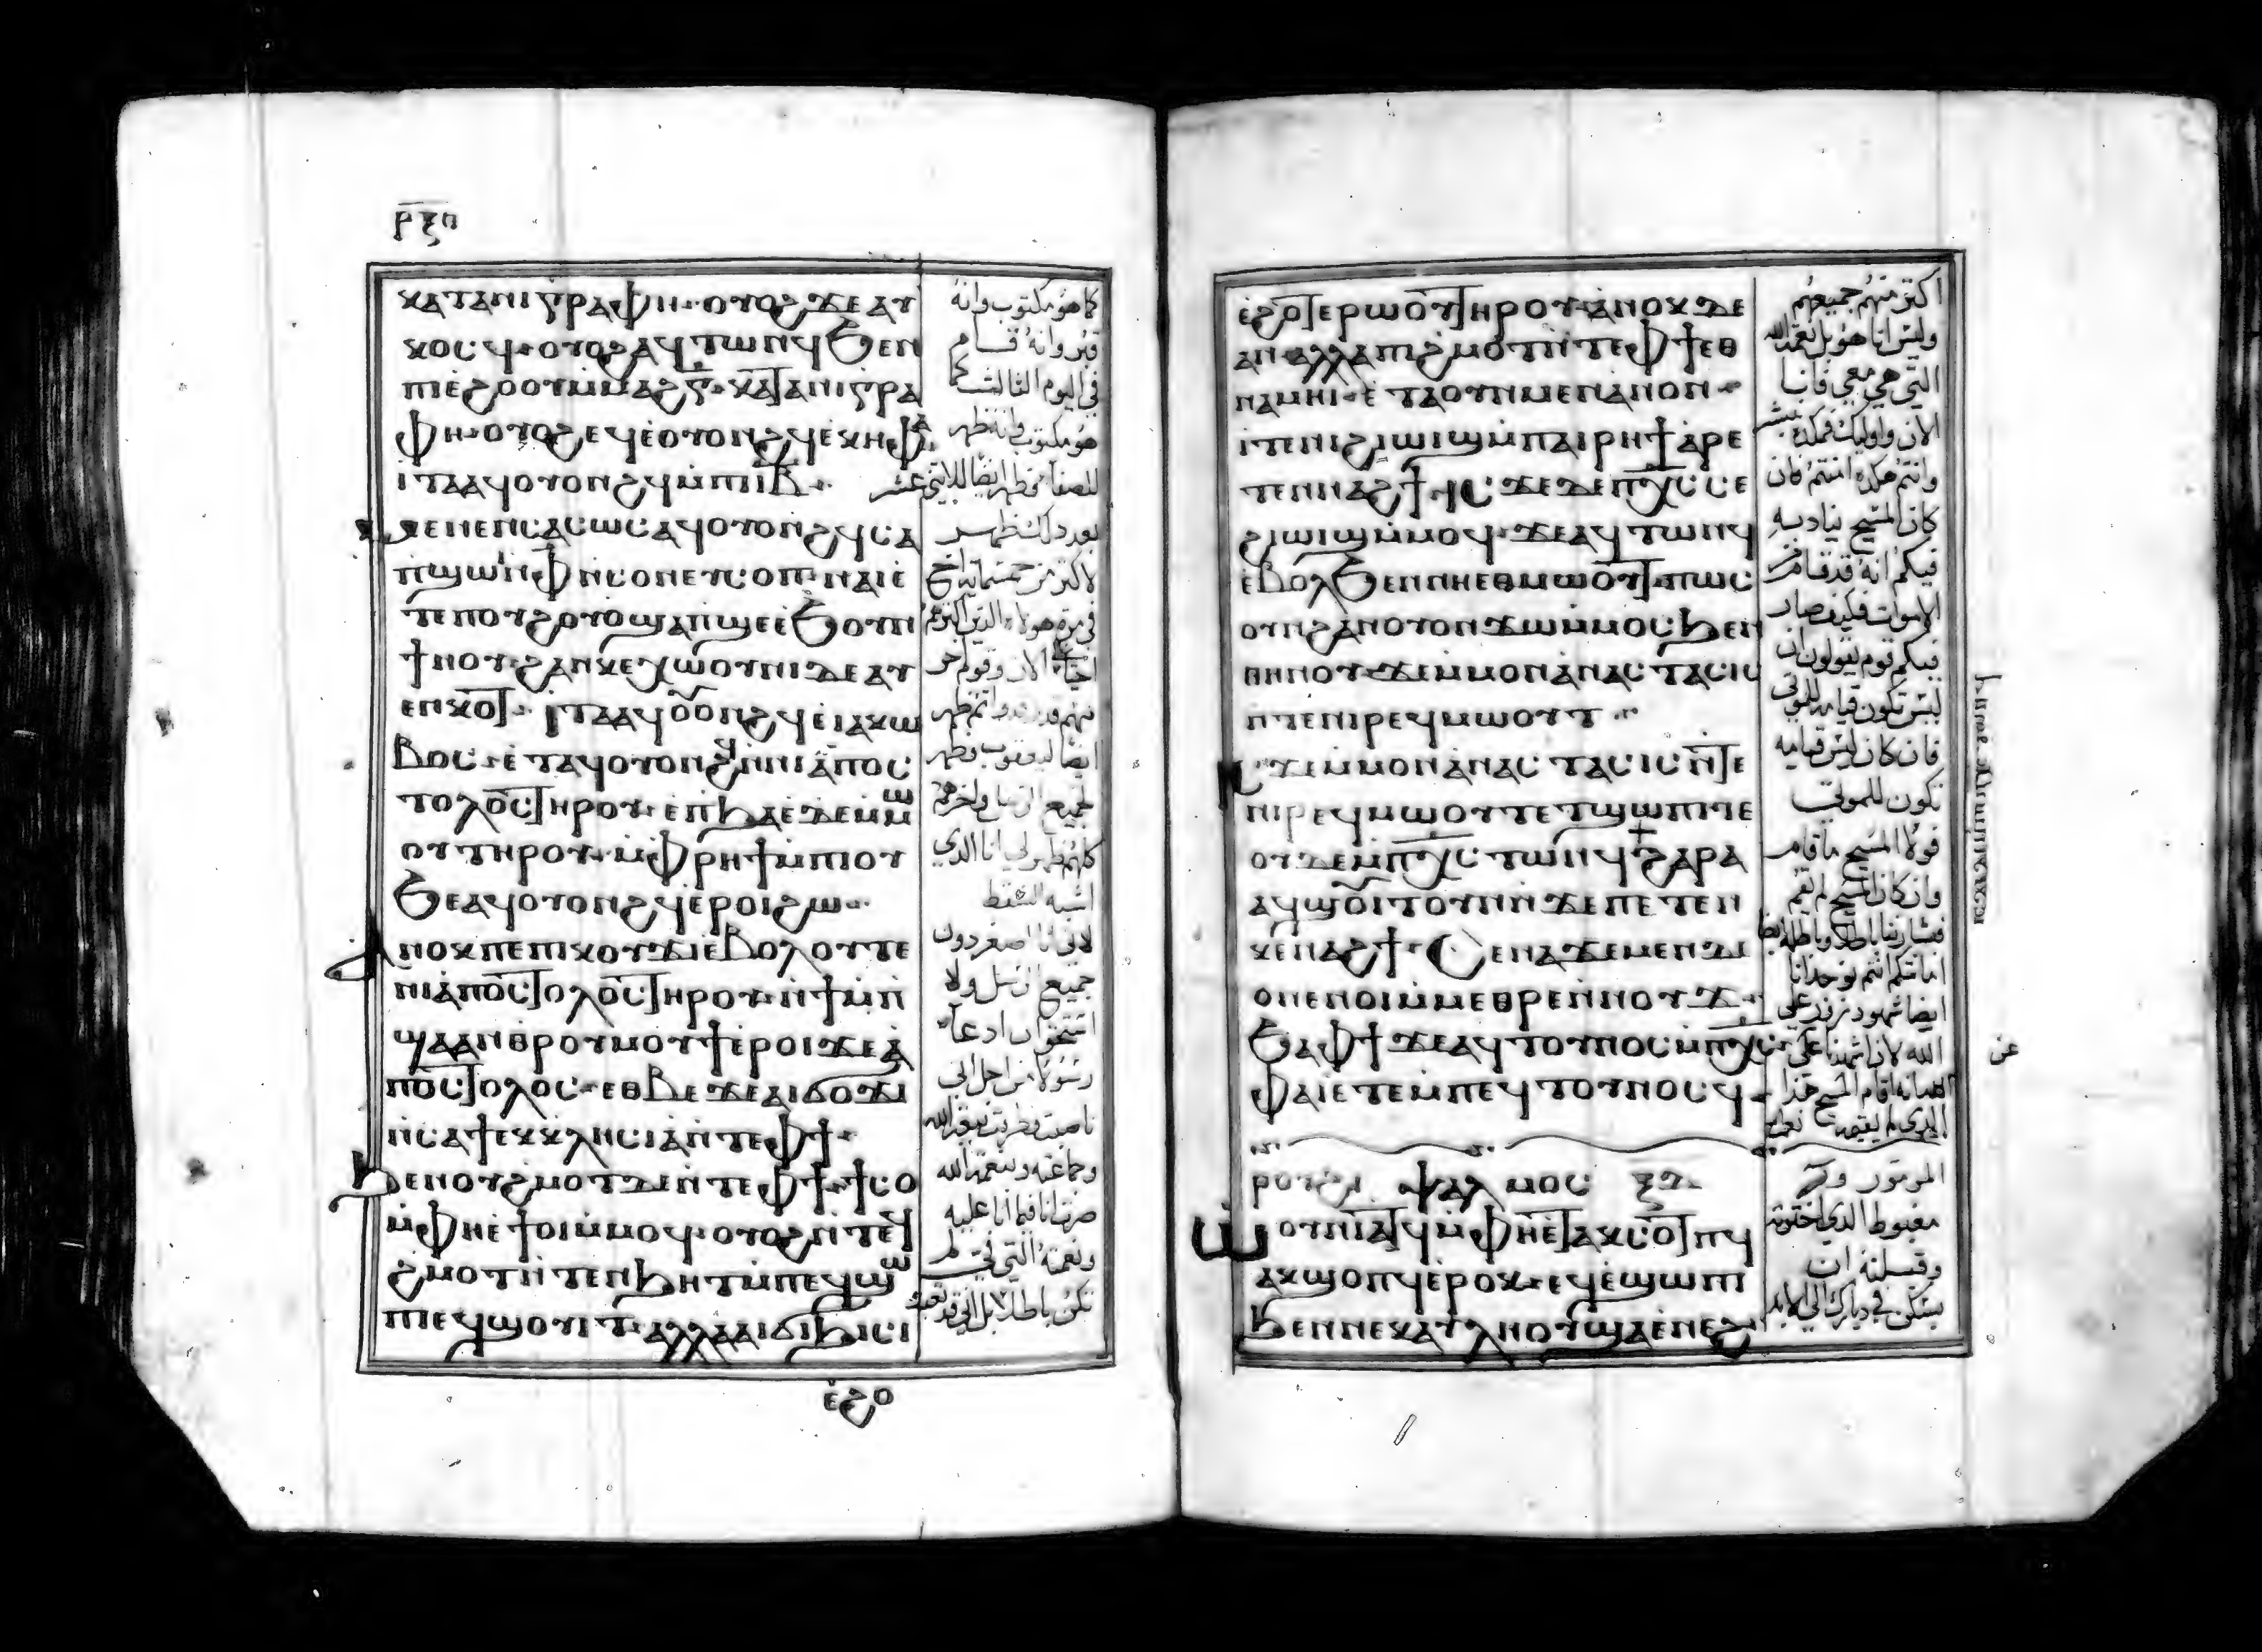 ⲣⲝⲏ
ⲕⲁⲧⲁⲛⲓⲅⲣⲁⲫⲏ· ⲟⲩⲟϩϫⲉⲁⲩ
ⲕⲟⲥϥ· ⲟⲩⲟϩⲁϥⲧⲱⲛϥϧⲉⲛ
ⲡⲓⲉ̀ϩⲟⲟⲩⲙ̀ⲙⲁϩⲅ̅· ⲕⲁⲧⲁⲛⲓⲅⲣⲁ
ⲫⲏ· ⲟⲩⲟϩⲉϥⲉ̀ⲟⲩⲟⲛϩϥⲉ̀ⲕⲏⲫⲁ
ⲓⲧⲁⲁϥⲟⲩⲟⲛϩϥⲙ̀ⲡⲓⲓⲃ̅·
ⲙⲉⲛⲉⲛⲥⲁⲥⲱⲥⲁϥⲟⲩⲟⲛϩϥⲥⲁ
ⲡϣⲱⲓⲛ̀ⲫ̅ⲛ̀ⲥⲟⲛⲉⲩⲥⲟⲡ· ⲛⲁⲓⲉ̀
ⲧⲉⲡⲟⲩϩⲟⲩⲟϣⲁⲡϣⲉⲉ̀ϧⲟⲩⲛ
ϯⲛⲟⲩ· ϩⲁⲛⲕⲉⲭⲱⲟⲩⲛⲓϫⲉⲁⲩ
ⲉⲛⲕⲟⲧ· ⲓⲧⲁⲁϥⲟⲩⲟⲛϩϥⲉ̀ⲓⲁⲕⲱ
ⲃⲟⲥ· ⲉ̀ⲧⲁϥⲟⲩⲟⲛϩϥⲛ̀ⲛⲓⲁ̀ⲡⲟⲥ
ⲧⲟⲗⲟⲥⲧⲏⲣⲟⲩ· ⲉ̀ⲡϧⲁⲉ̀ⲇⲉⲙ̀ⲙⲱ
ⲟⲩⲧⲏⲣⲟⲩ· ⲙ̀ⲫⲣⲏϯⲙ̀ⲡⲓⲟⲩ
ϧⲉⲁϥⲟⲩⲟⲛϩϥⲉ̀ⲣⲟⲓϩⲱ·
ⲁⲛⲟⲕⲡⲉⲡⲓⲕⲟⲩϫⲓⲉ̀ⲃⲟⲗⲟⲩⲧⲉ
ⲛⲓⲁ̀ⲡⲟⲥⲧⲟⲗⲟⲥⲧⲏⲣⲟⲩ· ⲛ̀ϯⲙ̀ⲡ
ϣⲁⲁⲛⲑⲣⲟⲩⲙⲟⲩϯⲉ̀ⲣⲟⲓϫⲉⲁ̀
ⲡⲟⲥⲧⲟⲗⲟⲥ· ⲉⲑⲃⲉϫⲉⲁⲓϭⲟϫⲓ
ⲛ̀ⲥⲁϯⲉⲕⲕⲗⲏⲥⲓⲁ̀ⲛ̀ⲧⲉⲫϯ·
ϧⲉⲛⲟⲩϩⲙⲟⲧⲇⲉⲛ̀ⲧⲉⲫϯ· ϯⲥⲟ
ⲙ̀ⲫⲏⲉ̀ϯⲟⲓⲙ̀ⲙⲟϥ· ⲟⲩⲟϩⲛ̀ⲧⲉϥ
ϩⲙⲟⲧⲛ̀ⲧⲉⲛϧⲏⲧⲙ̀ⲡⲉϥϣⲱ
ⲡⲓⲉϥϣⲟⲩⲓⲧ· ⲁⲗⲗⲁⲁⲓϭⲓϧⲓⲥⲓ
كما هو مكتوب وانه
قبر وانه قام
في اليوم الثالث كما
هو مكتوب وانه ظهر
للصفا ثم ظهر ايضا للاثني عشر
بعد ذلك ظهر
لاكثر من خمسماية اخ
في مرة هولاء الذين اكثرهم
احيا الان وقوم اخر
منهم قد رقدوا ثم ظهر
ايضا ليعقوب فظهر
لجميع الرسل واخرهم
كلهم ظهر لي انا الذي
اشبه السقط
لاني انا اصغر دون
جميع الرسل ولا
استحق ان ادعا
رسولا من اجل اني
ناصبت
وجماعته وبنعمة الله
صرت انا فيما انا عليه
ونعمته التي في لم
تكن باطلا بل اني قد تعبت
ⲉ̀ϩⲟ
ⲉ̀ϩⲟⲧⲉⲣⲱⲟⲩⲧⲏⲣⲟⲩ· ⲁ̀ⲛⲟⲕⲇⲉ
ⲁⲛ· ⲁⲗⲗⲁⲡⲓϩⲙⲟⲧⲛ̀ⲧⲉⲫϯⲉⲑ
ⲛⲁⲙⲏⲓ· ⲉ̀ⲧⲁⲟⲩⲛⲙⲉⲛⲁⲛⲟⲛ·
ⲓⲧⲉⲛⲓϩⲓⲱⲓϣⲙ̀ⲡⲁⲓⲣⲏϯⲁ̀ⲣⲉ
ⲧⲉⲛⲛⲁϩϯ· ⲓⲥϫⲉⲇⲉⲡⲭ̅ⲥ̅ⲥⲉ
ϩⲓⲱⲓϣⲙ̀ⲙⲟϥ· ϫⲉⲁϥⲧⲱⲛϥ
ⲉ̀ⲃⲟⲗϧⲉⲛⲛⲏⲉⲑⲙⲱⲟⲩⲧ· ⲡⲱⲥ
ⲟⲩⲛϩⲁⲛⲟⲩⲟⲛϫⲱⲙ̀ⲙⲟⲥϧⲉⲛ
ⲑⲏⲛⲟⲩ· ϫⲉⲙ̀ⲙⲟⲛⲁ̀ⲛⲁⲥⲧⲁⲥⲓⲥ
ⲛ̀ⲧⲉⲛⲓⲣⲉϥⲙⲱⲟⲩⲧ·
ⲓⲥϫⲉⲙ̀ⲙⲟⲛⲁ̀ⲛⲁⲥⲧⲁⲥⲓⲥⲛ̀ⲧⲉ
ⲛⲓⲣⲉϥⲙⲱⲟⲩⲧⲉⲧϣⲱⲡⲓⲓⲉ
ⲟⲩⲇⲉⲙ̀ⲡⲭ̅ⲥ̅ⲧⲱⲛϥϯϩⲁⲣⲁ
ⲁϥϣⲟⲓⲧⲟⲩⲛⲛ̀ϫⲉⲡⲉⲧⲉⲛ
ⲕⲉⲛⲁϩϯ· ⲥⲉⲛⲁϫⲉⲙⲉⲛⲇⲉ
ⲟⲛⲉⲛⲟⲓⲙ̀ⲙⲉⲑⲣⲉⲛ̀ⲛⲟⲩϫ·
ϧⲁⲫϯϫⲉⲁϥⲧⲟⲩⲛⲟⲥⲙ̀ⲡⲭ̅ⲥ̅·
ⲫⲁⲓⲉⲧⲉⲙ̀ⲡⲉϥⲧⲟⲩⲛⲟⲥϥ·
ⲣⲟⲩϩⲓ ⲯⲁⲗⲙⲟⲥ ⲝⲇ
ⲱⲟⲩⲛⲓⲁⲧϥⲙ̀ⲫⲏⲉ̀ⲧⲁⲕⲥⲟⲧⲡϥ
ⲁⲕϣⲟⲡϥⲉ̀ⲣⲟⲕ· ⲉϥⲉ̀ϣⲱⲡⲓ
ϧⲉⲛⲛⲉⲕⲁⲩⲗⲏⲟⲩϣⲁⲉ̀ⲛⲉϩ·
اكثر منهم جميعهم
وليس انا هو بل نعمة الله
التي هي معي فانا
الان واوليك فهكذا نبشر
وانتم هكذا امنتم فان
كان المسيح ينادي به
فيكم انه قد قام من
الاموات فكيف صار
فيكم قوم يقولون ان
ليس تكون قيامة للموتى
فان كان ليس قيامة
تكون للموتى
فولا المسيح ما قام
وان كان المسيح لم يقم
امانتكم انتم
ايضا شهود زور على
الله لاننا شهدنا على
الله انه اقام المسيح هذا
الذي لم يقيمه
المزمور
مغبوط الذي اخترته
وقبلته ان
يسكن في ديارك الى الابد
عن